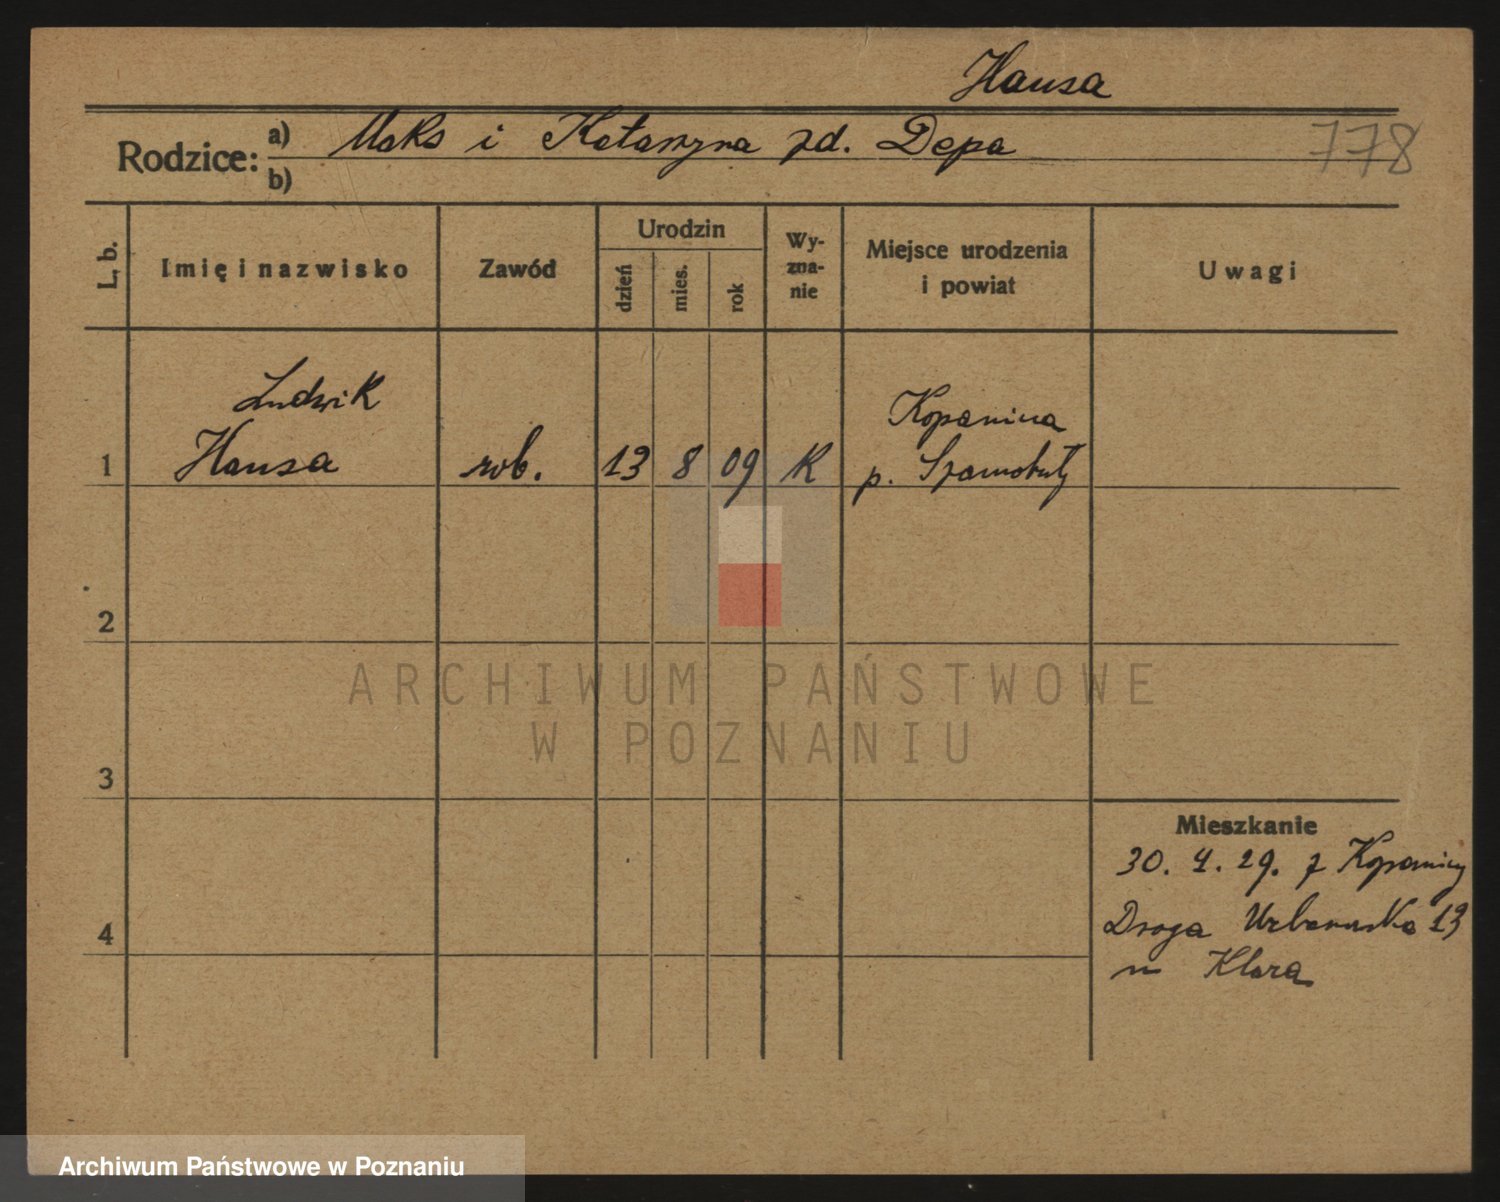 Hansa
Rodzice: a) Maks i Katarzyna zd. Depa
b)
778
L. b.
Imię i nazwisko
Zawód
Urodzin
dzień
mies.
rok
Wy-
zna-
nie
Miejsce urodzenia
i powiat
Uwagi
Ludwik
Hansa
1
rob.
13 8 09 K
Kopanina
p. Szamotuły
2
ARCHIWUM PAŃSTWOWE
W POZNANIU
3
Mieszkanie
30. 4. 29. z Kopaniny
Droga Urbanowska 13
4
u Klora
Archiwum Państwowe w Poznaniu